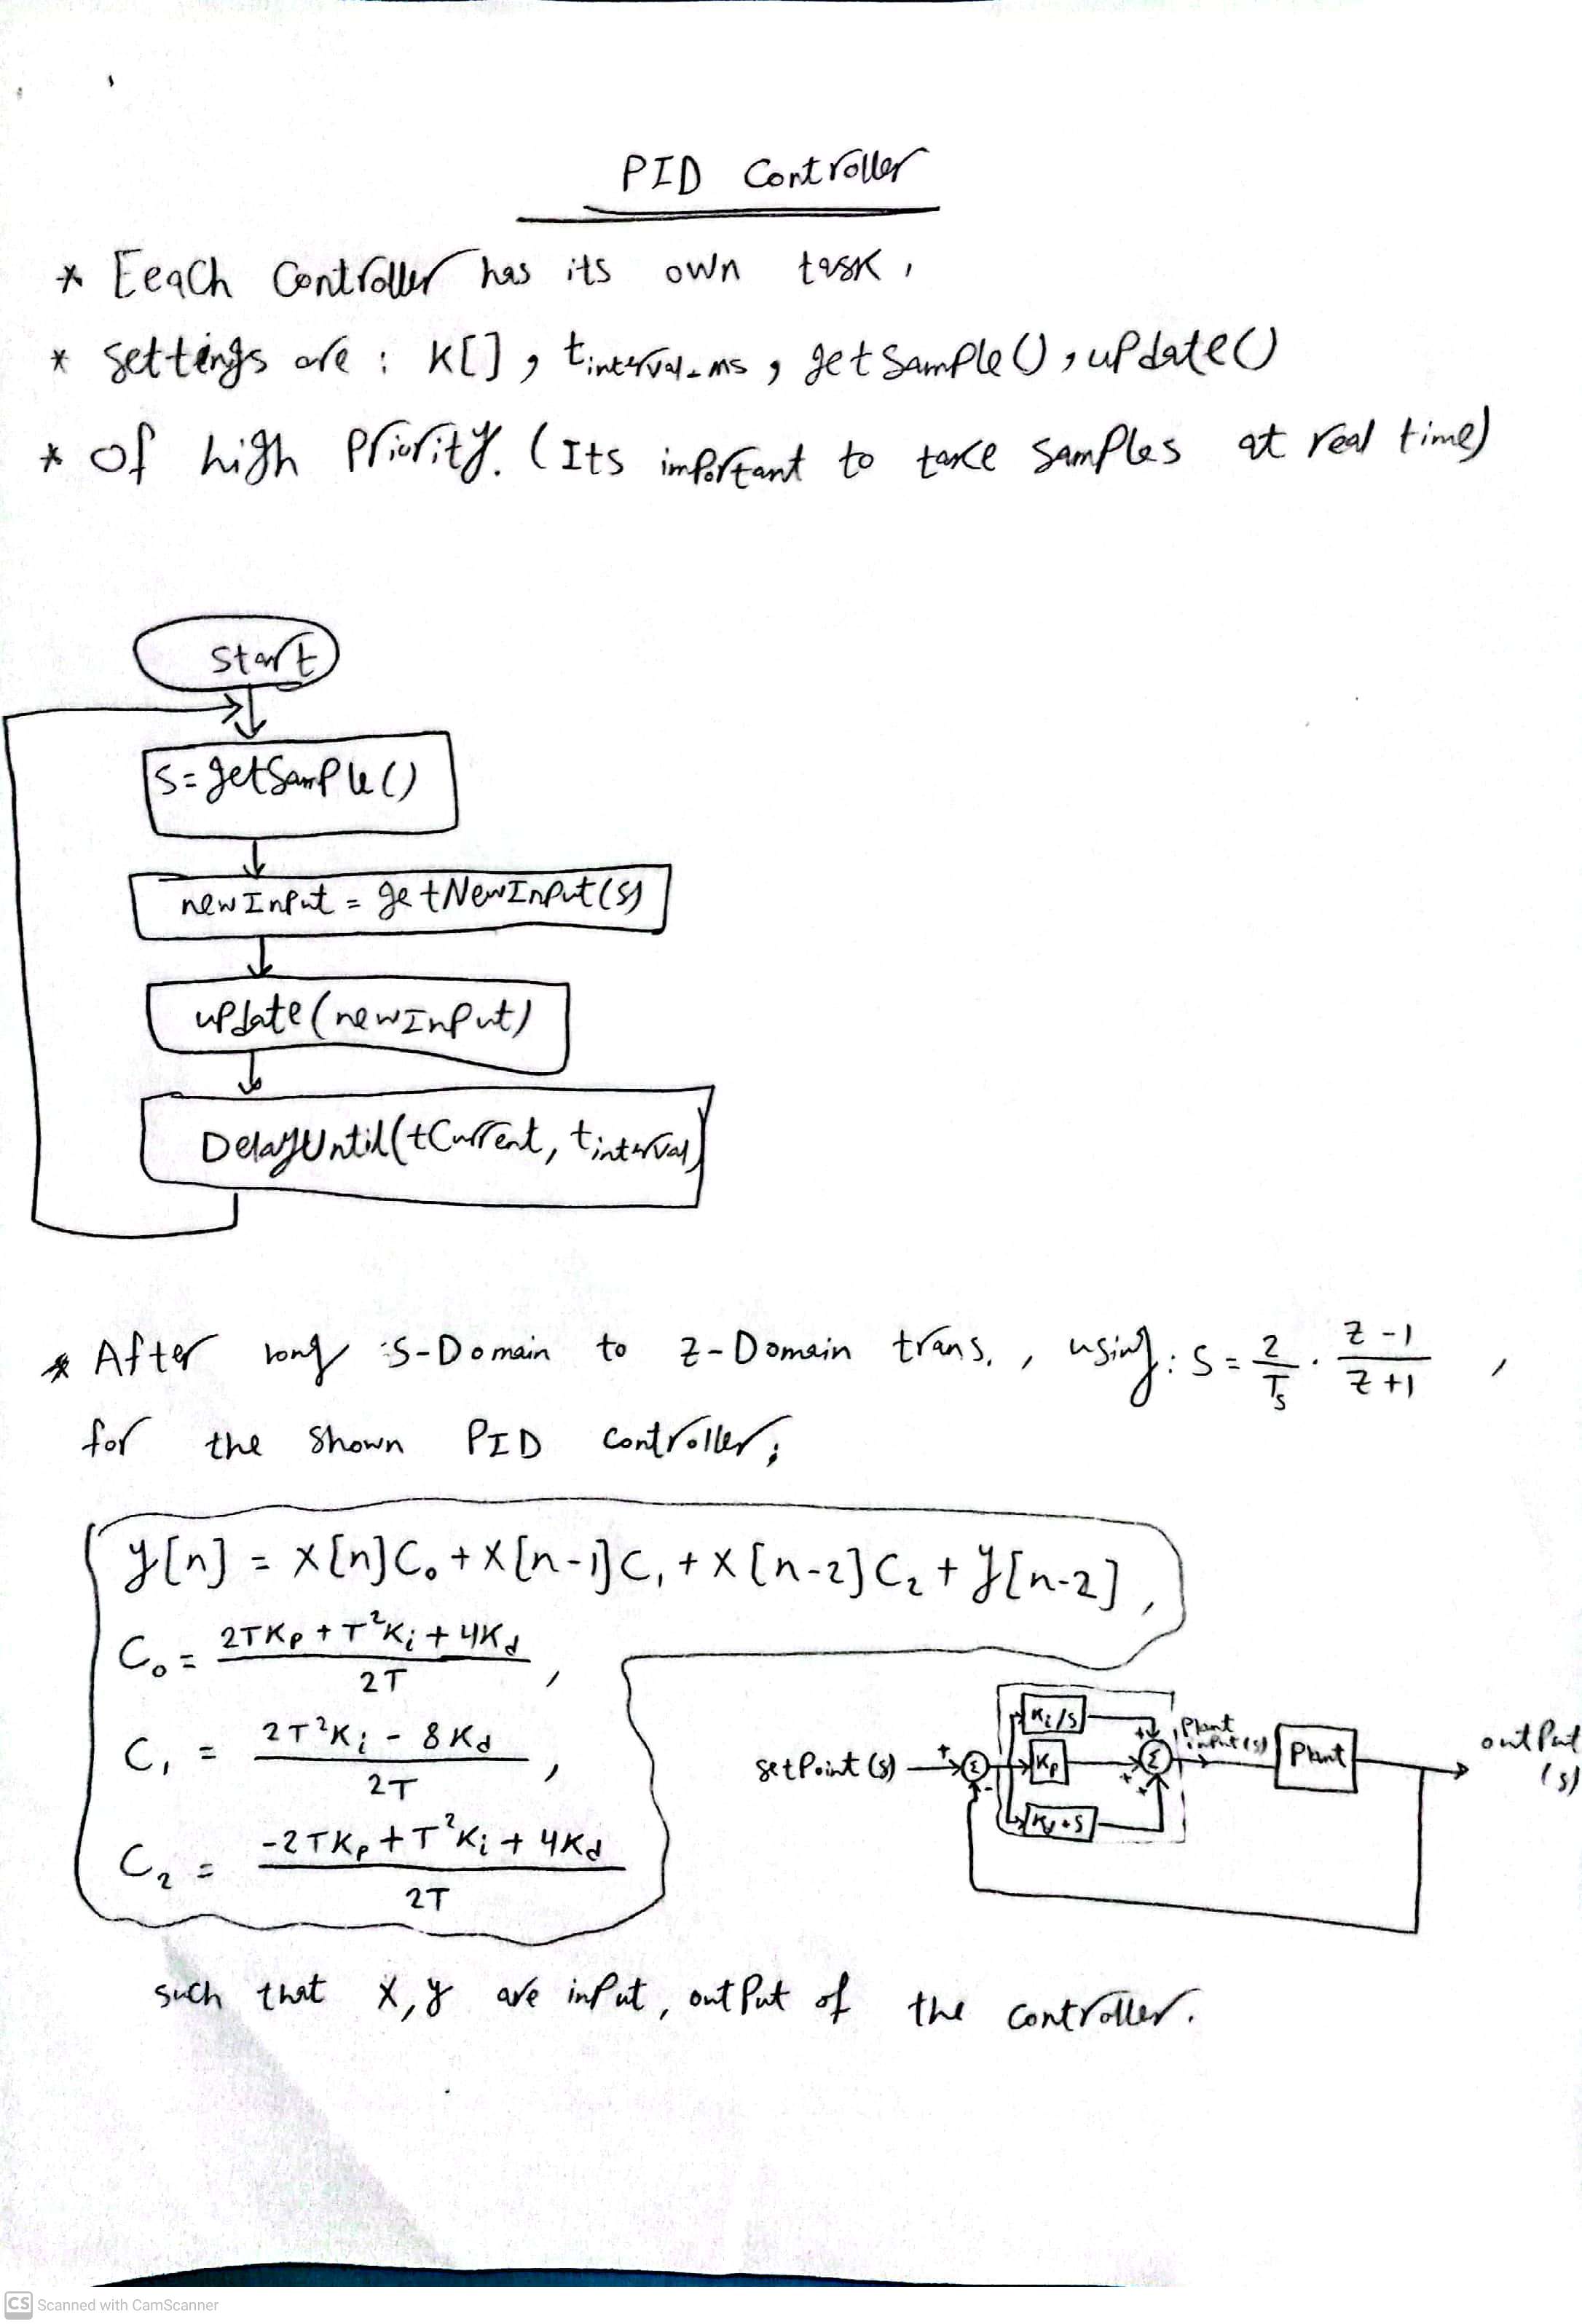 PID Controller
* Eeach Controller has its own task,
* settings are : K[] , tinterval_ms , getSample() , update()
* Of high Priority. (Its important to take samples at real time)
start
S=getSample()
newInput = getNewInput(S)
update(newInput)
DelayUntil(tCurrent, tinterval)
* After long S-Domain to Z-Domain trans. , using : S = 2/Ts . Z-1/Z+1 ,
for the shown PID controller;
y[n] = X[n]C₀ + X[n-1]C₁ + X[n-2]C₂ + y[n-2] ,
C₀ = 2TKp + T²Ki + 4Kd / 2T ,
C₁ = 2T²Ki - 8Kd / 2T ,
C₂ = -2TKp + T²Ki + 4Kd / 2T
Ki/S
setPoint(s) + - Σ Kp + + + Σ Plant input(s) Plant output (s)
Kd*S
such that X, y are input, output of the controller.
CS Scanned with CamScanner